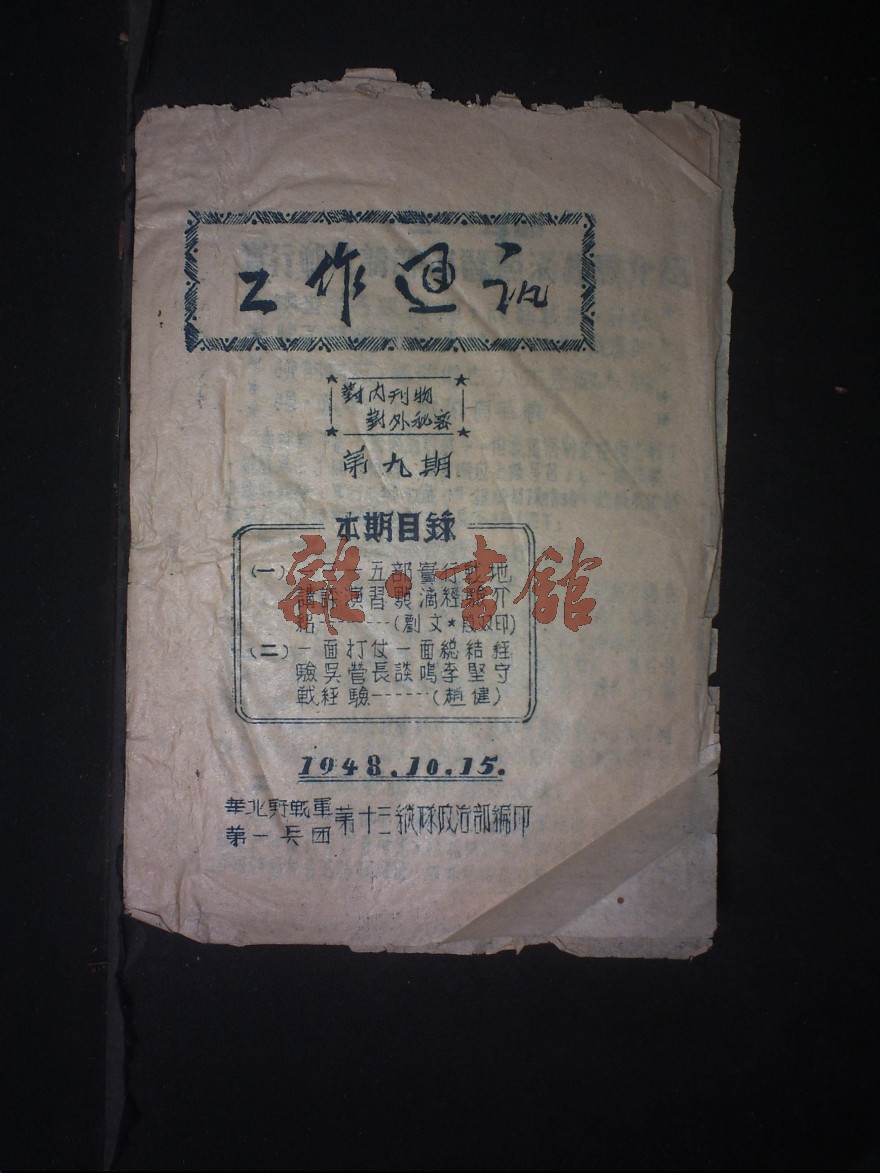 工作通訊
對內刊物
對外秘密
第九期
本期目錄
(一) 一一五部實行戰地
講評演習點滴經驗介
紹------(劉文★段双印)
(二)一面打仗一面總結經
驗吳营長談鳴李堅守
戰經驗------(趙健)
1948.10.15.
華北野戰軍
第一兵团
第十三縱隊政治部編印
雜·書館